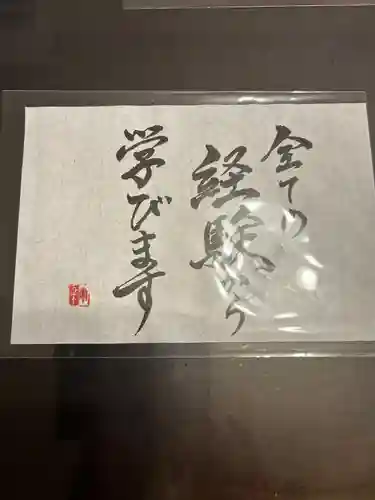 全ての
経験から
学びます